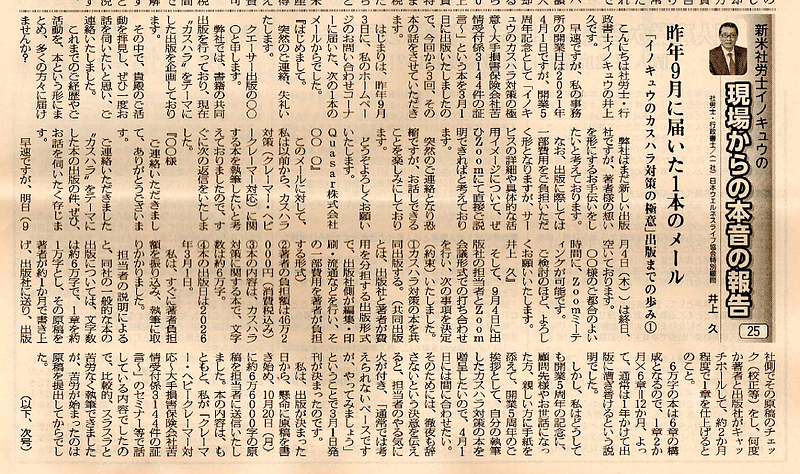 新米社労士イノキュウの
現場からの本音の報告
25
社労士・行政書士/(一社)日本ウェルネスライフ協会特別顧問
井上 久
昨年9月に届いた1本のメール
「イノキュウのカスハラ対策の極意」出版までの歩み①
こんにちは社労士・行
政書士イノキュウの井上
久です。
早速ですが、私の事務
所の開業日は2021年
4月1日ですが、開業5
周年記念として「イノキ
ュウのカスハラ対策の極
意〜大手損害保険会社苦
情受付係3144件の証
言〜」という本を3月1
日に出版いたしましたの
で、今回から3回、その
本の話をさせていただき
ます。
はじまりは、昨年9月
3日に、私のホームペー
ジのお問い合わせコーナ
ーに届いた、次の1本の
メールからでした。
『はじめまして。
突然のご連絡、失礼い
たします。
クエーサー出版の〇〇
〇と申します。
弊社では、書籍の共同
出版を行っており、現在
〝カスハラ〟をテーマに
した出版を企画しており
ます。
その中で、貴殿のご活
動を拝見し、ぜひ一度お
話を伺いたいと思い、ご
連絡いたしました。
これまでのご経歴やご
活動を、本という形にま
とめ、多くの方々に届け
ませんか?
弊社はまだ新しい出版
社ですが、著者様の想い
を形にするお手伝いをし
たいと考えております。
なお、出版に際しては
一部費用をご負担いただ
く形となりますが、サー
ビスの詳細や具体的な活
用イメージについて、ぜ
ひZoomにて直接ご説
明できればと考えており
ます。
突然のご連絡となり恐
縮ですが、お話しできる
ことを楽しみにしており
ます。
どうぞよろしくお願い
いたします。
Quasar株式会社
〇〇 〇』
このメールに対して、
私は以前から、カスハラ
対策(クレーマー・ヘビ
ークレーマー対応)に関
する本を執筆したいと考
えておりましたので、す
ぐに次の返信をいたしま
した。
『〇〇様
ご連絡いただきまし
て、ありがとうございま
す。
ご連絡いただきました
〝カスハラ〟をテーマに
した本の出版の件、ぜひ、
お話を伺いたく存じま
す。
早速ですが、明日(9
月4日(木))は終日、
空いております。
〇〇様のご都合のよい
時間に、Zoomミーテ
ィングが可能です。
ご検討のほど、よろし
くお願いいたします。
井上 久』
そして、9月4日に出
版社の担当者とZoom
会議形式での打ち合わせ
を行い、次の事項を決定
(約束)いたしました。
①カスハラ対策の本を共
同出版する。(共同出版
とは、出版社と著者が費
用を分担する出版形式
で、出版社側が編集・印
刷・流通などを行い、そ
の一部費用を著者が負担
する形式)
②著者の負担額は16万2
000円(消費税込み)
③本の内容は、カスハラ
対策に関する本で、文字
数は約6万字。
④本の出版日は2026
年3月1日。
私は、すぐに著者負担
額を振り込み、執筆に取
りかかりました。
担当者の説明による
と、同社の一般的な本の
出版については、文字数
は約6万字で、1章を約
1万字とし、その原稿を
著者が約1か月で書き上
げ、出版社に送り、出版
社側でその原稿のチェッ
ク(校正等)をし、何度
か著者と出版社がキャッ
チボールして、約2か月
程度で1章を仕上げると
のこと。
6万字の本は6章の構
成になるので、1章2か
月×6章=12か月、よっ
て、通常は1年かけて出
版に漕ぎ着けるという説
明でした。
しかし、私はどうして
も開業5周年の記念に、
顧問先様やお世話になっ
た方、親しい方に手紙を
添えて、開業5周年のご
挨拶として、自分の執筆
したカスハラ対策の本を
贈呈したいので、4月1
日には間に合わせたい。
そのためには、徹夜も辞
さないという決意を伝え
ると、担当者のやる気に
火が付き、「通常では考
えられないペースです
が、やってみましょう」
ということで3月1日発
刊が決まったのです。
私は、出版が決まった
日から、懸命に原稿を書
き始め、10月20日(月)
に約6万6000字の原
稿を担当者に送信いたし
ました。本の内容は、も
ともと、私が「クレーマ
ー・ヘビークレーマー対
応〜大手損害保険会社苦
情受付係3144件の証
言〜」のセミナー等で話
している内容でしたの
で、比較的、スラスラと
苦労なく執筆できました
が、苦労が始まったのは
原稿を提出してからでし
た。 (以下、次号)